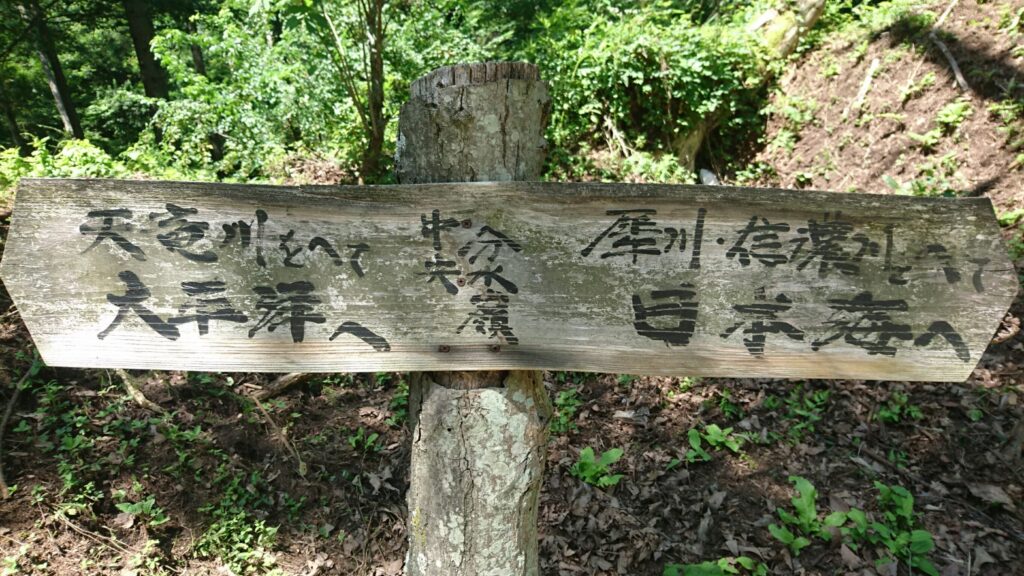 天・竜川をへて
大平洋へ
中央
分水嶺
犀川・信濃川をへて
日本海へ